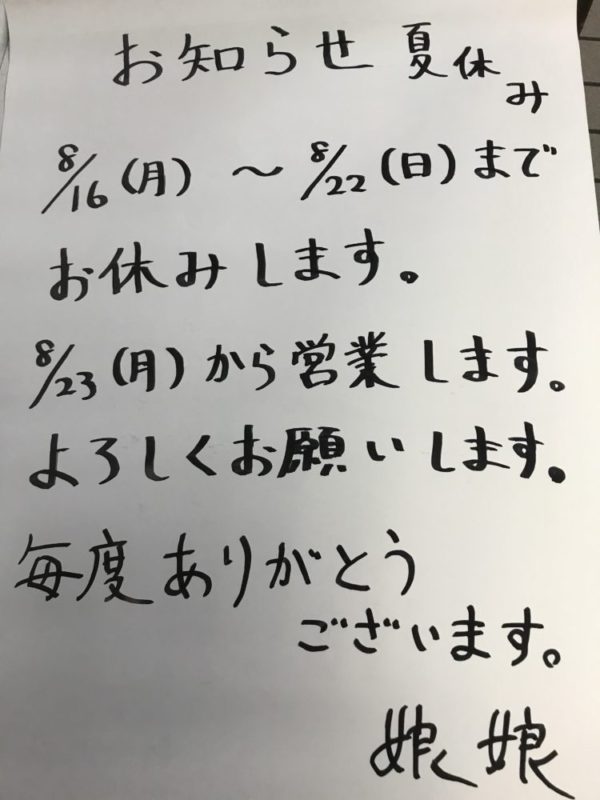 お知らせ 夏休み
8/16(月) 〜 8/22(日)まで
お休みします。
8/23(月)から営業します。
よろしくお願いします。
毎度ありがとう
ございます。
娘娘